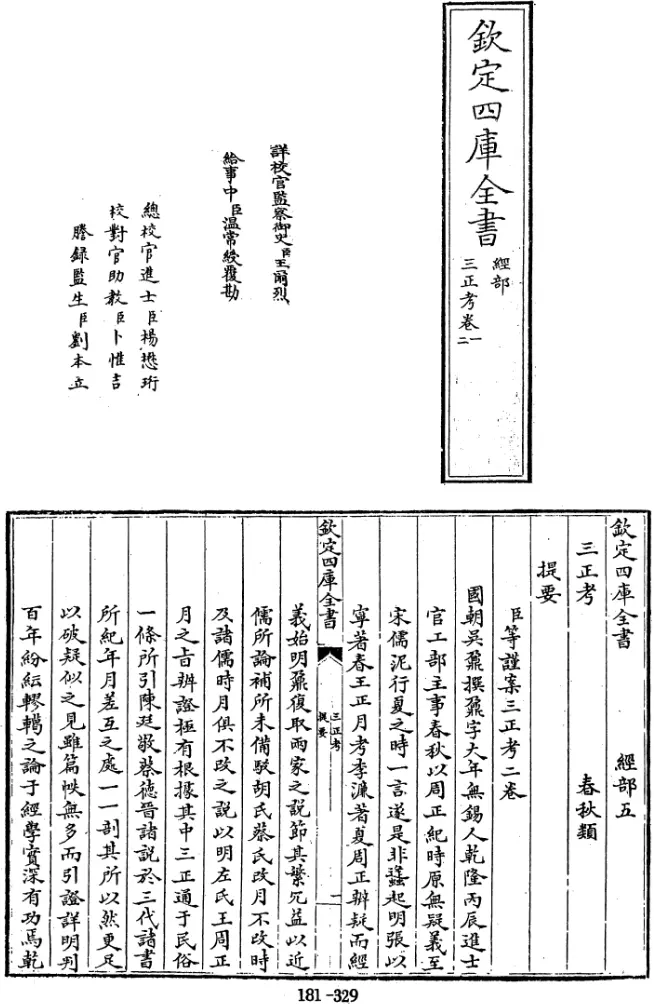 欽定四庫全書
經部
三正考卷一
二
詳校官監察御史臣王爾烈
給事中臣溫常綬覆勘
總校官進士臣楊懋珩
校對官助教臣卜惟吉
謄錄監生臣劉本立
欽定四庫全書
經部五
三正考
春秋類
提要
臣等謹案三正考二卷
國朝吳鼐撰鼐字大年無錫人乾隆丙辰進士
官工部主事春秋以周正紀時原無疑義至
宋儒泥行夏之時一言遂是非蠭起明張以
寧著春王正月考李濂著夏周正辨疑而經
欽定四庫全書
三正考
提要
一
義始明鼐復取兩家之說節其繁冗益以近
儒所論補所未備駁胡氏蔡氏改月不改時
及諸儒時月俱不改之說以明左氏王周正
月之旨辨證極有根據其中三正通于民俗
一條所引陳廷敬蔡德晉諸說於三代諸書
所紀年月差互之處一一剖其所以然更足
以破疑似之見雖篇帙無多而引證詳明判
百年紛紜轇轕之論于經學實深有功焉乾
181-329